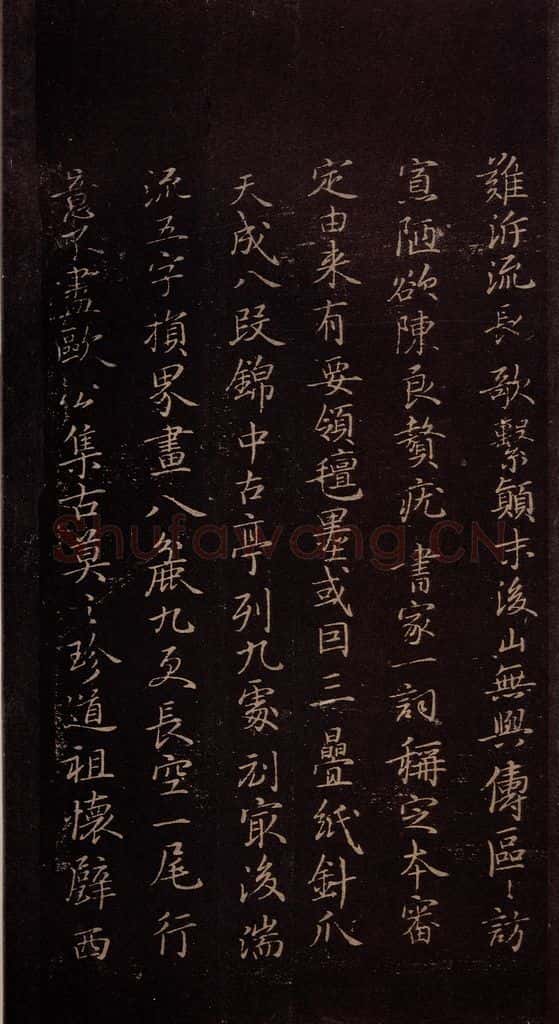 難沂流長歌繫顛末後山無與傳區〻訪
寡陋欲陳良贅疣書家一詞稱定本審
定由来有要領氊墨或因三疊紙針爪
天成八段錦中古亭列九處刓冣後湍
流五字損界畫八麤九更長空一尾行
意不盡歐公集古莫之珍道祖懷璧西
Shufawang.CN